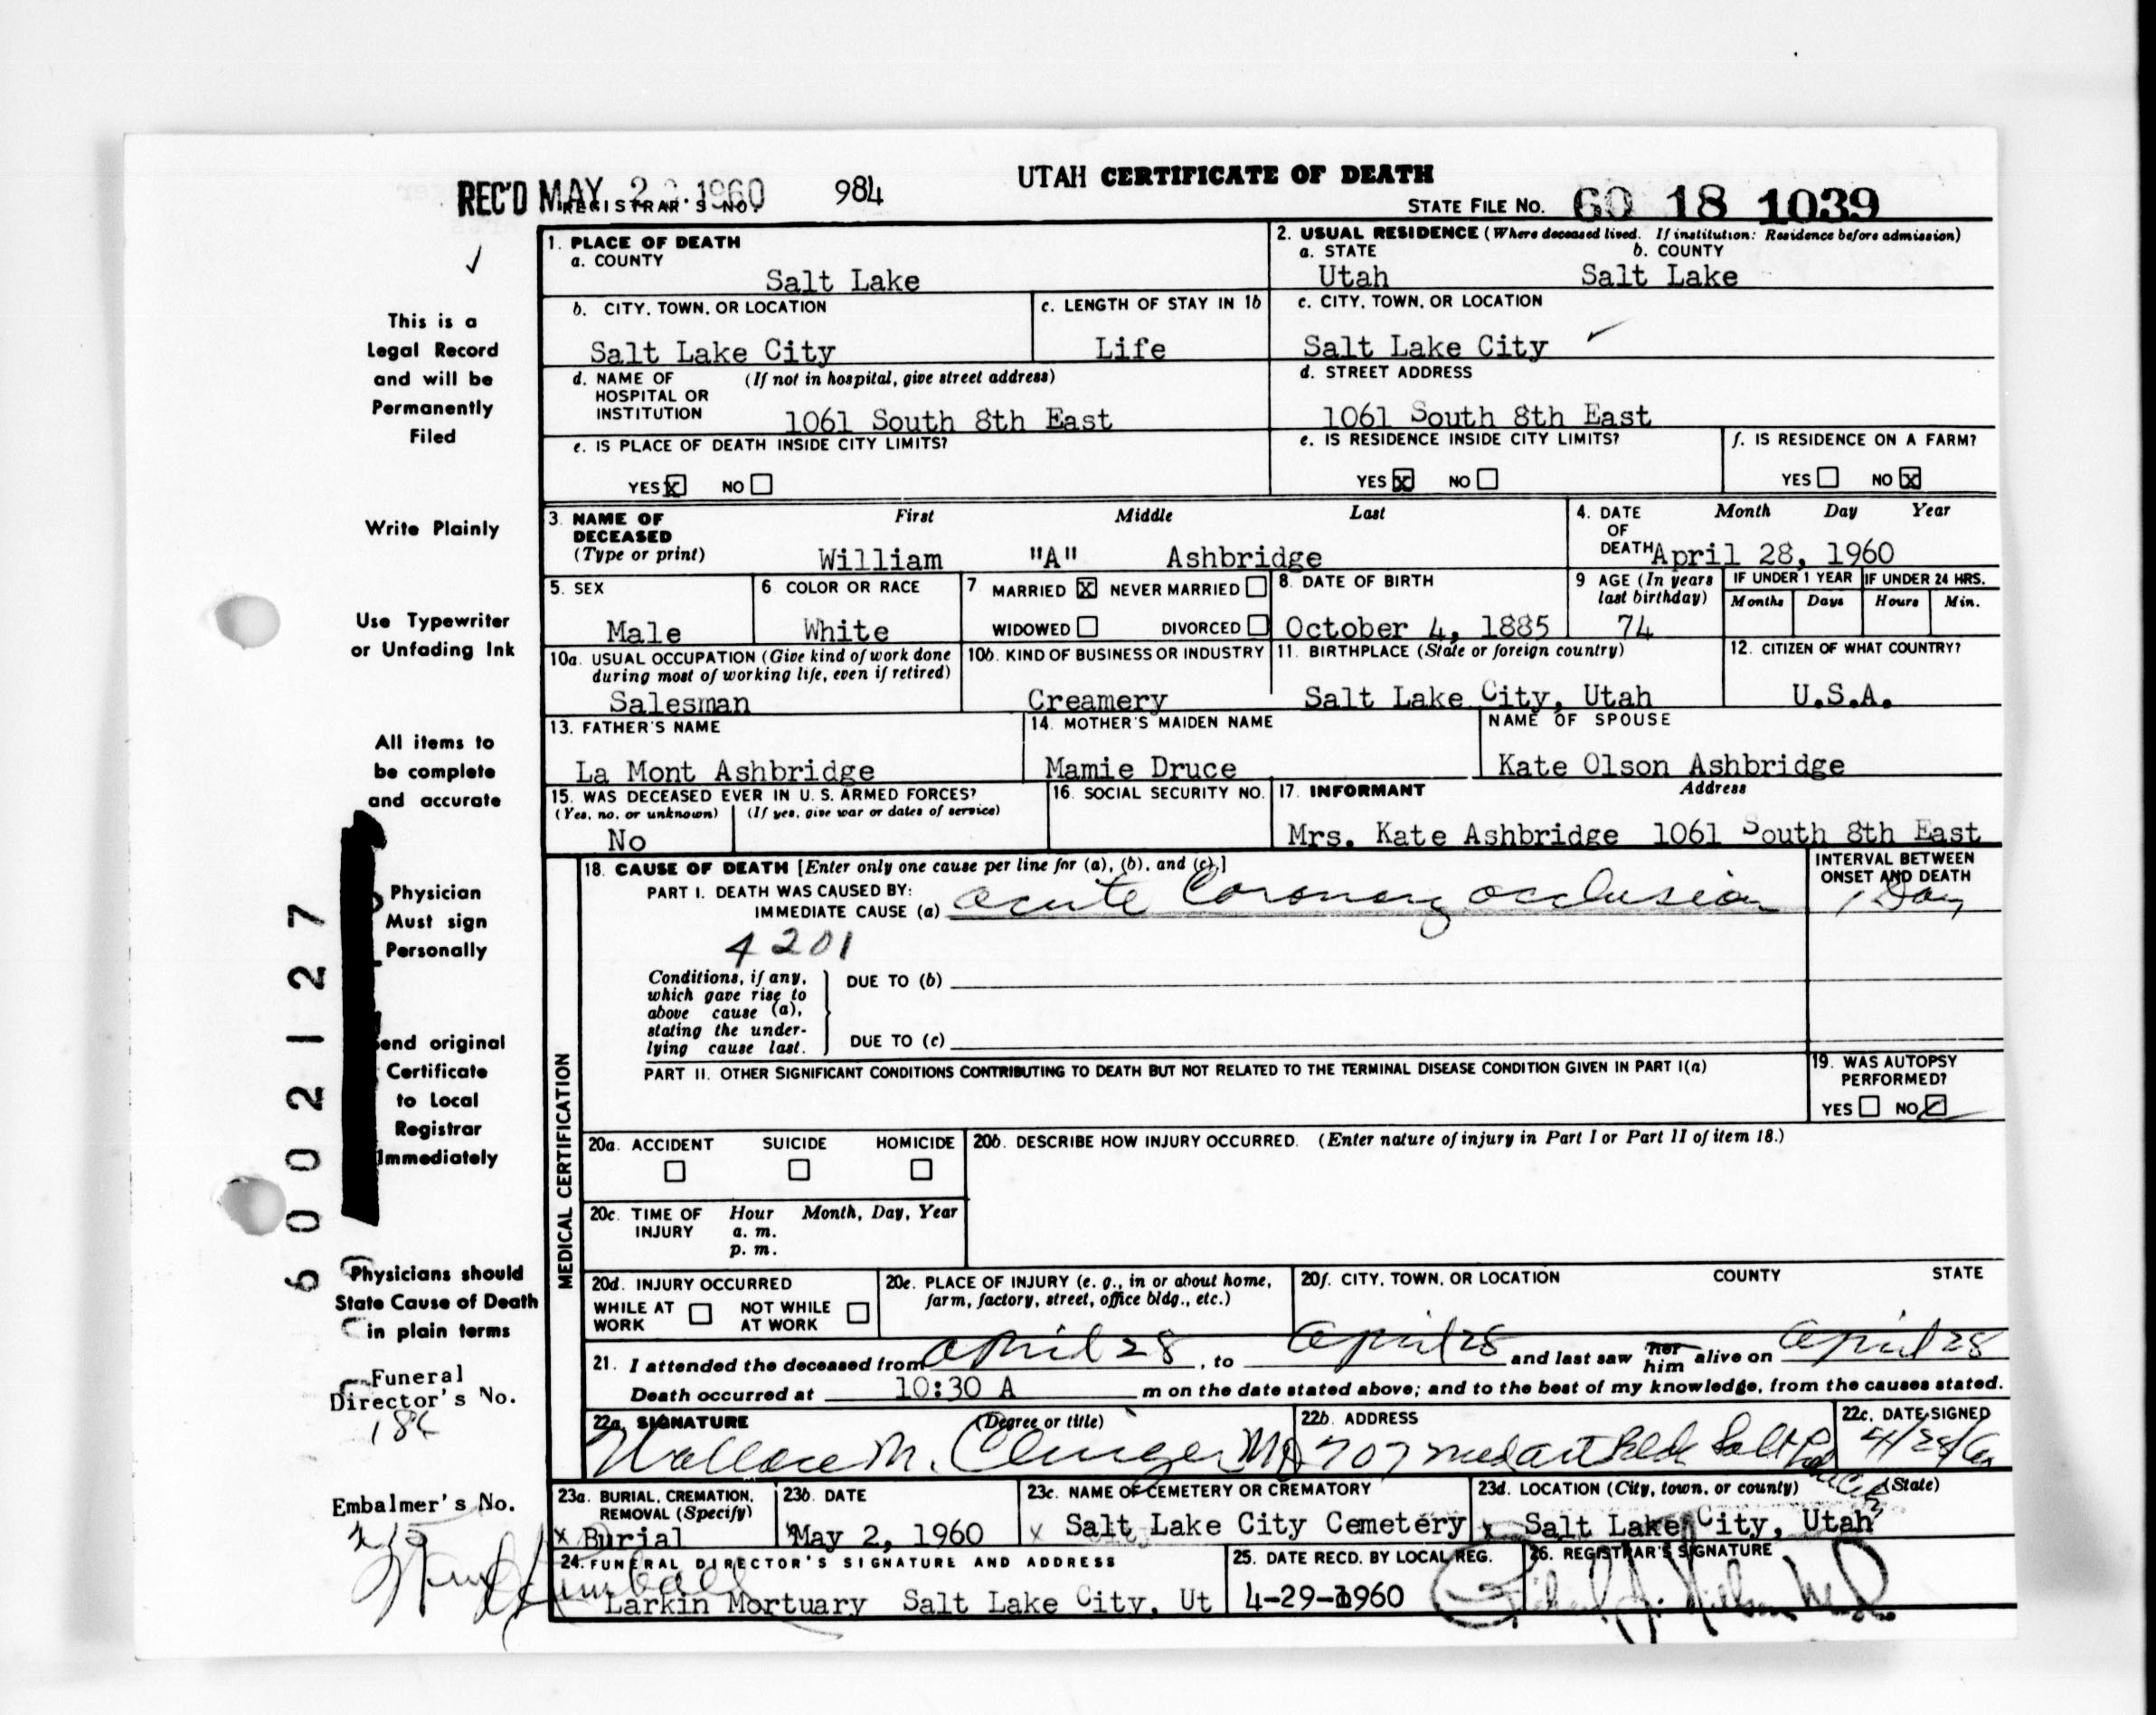 UTAH CERTIFICATE OF DEATH
REC'D MAY 2 1960 984
REGISTRAR'S NO.
STATE FILE No. 60 18 1039
1. PLACE OF DEATH
a. COUNTY
Salt Lake
2. USUAL RESIDENCE (Where deceased lived. If institution: Residence before admission)
a. STATE b. COUNTY
Utah Salt Lake
b. CITY, TOWN, OR LOCATION
Salt Lake City
c. LENGTH OF STAY IN 1b
Life
c. CITY, TOWN, OR LOCATION
Salt Lake City
d. NAME OF (If not in hospital, give street address)
HOSPITAL OR
INSTITUTION
1061 South 8th East
d. STREET ADDRESS
1061 South 8th East
e. IS PLACE OF DEATH INSIDE CITY LIMITS?
YES X NO
e. IS RESIDENCE INSIDE CITY LIMITS?
YES X NO
f. IS RESIDENCE ON A FARM?
YES NO X
3. NAME OF First Middle Last
DECEASED
(Type or print)
William "A" Ashbridge
4. DATE Month Day Year
OF
DEATH April 28, 1960
5. SEX
Male
6 COLOR OR RACE
White
7 MARRIED X NEVER MARRIED
WIDOWED DIVORCED
8. DATE OF BIRTH
October 4, 1885
9 AGE (In years
last birthday)
74
IF UNDER 1 YEAR IF UNDER 24 HRS.
Months Days Hours Min.
10a. USUAL OCCUPATION (Give kind of work done
during most of working life, even if retired)
Salesman
10b. KIND OF BUSINESS OR INDUSTRY
Creamery
11. BIRTHPLACE (State or foreign country)
Salt Lake City, Utah
12. CITIZEN OF WHAT COUNTRY?
U.S.A.
13. FATHER'S NAME
La Mont Ashbridge
14. MOTHER'S MAIDEN NAME
Mamie Druce
NAME OF SPOUSE
Kate Olson Ashbridge
15. WAS DECEASED EVER IN U. S. ARMED FORCES?
(Yes, no, or unknown) (If yes, give war or dates of service)
No
16. SOCIAL SECURITY NO.
17. INFORMANT Address
Mrs. Kate Ashbridge 1061 South 8th East
18. CAUSE OF DEATH [Enter only one cause per line for (a), (b), and (c).]
PART I. DEATH WAS CAUSED BY:
IMMEDIATE CAUSE (a) acute Coronary occlusion
INTERVAL BETWEEN
ONSET AND DEATH
1 Day
4201
Conditions, if any,
which gave rise to
above cause (a),
stating the under-
lying cause last.
DUE TO (b)
DUE TO (c)
PART II. OTHER SIGNIFICANT CONDITIONS CONTRIBUTING TO DEATH BUT NOT RELATED TO THE TERMINAL DISEASE CONDITION GIVEN IN PART I(a)
19. WAS AUTOPSY
PERFORMED?
YES NO
MEDICAL CERTIFICATION
20a. ACCIDENT SUICIDE HOMICIDE
20b. DESCRIBE HOW INJURY OCCURRED. (Enter nature of injury in Part I or Part II of item 18.)
20c. TIME OF Hour Month, Day, Year
INJURY a. m.
p. m.
20d. INJURY OCCURRED
WHILE AT NOT WHILE
WORK AT WORK
20e. PLACE OF INJURY (e. g., in or about home,
farm, factory, street, office bldg., etc.)
20f. CITY, TOWN, OR LOCATION COUNTY STATE
21. I attended the deceased from April 28, to April 28 and last saw her him alive on April 28
Death occurred at 10:30 A m on the date stated above; and to the best of my knowledge, from the causes stated.
22a. SIGNATURE (Degree or title)
Wallace M. Clinger MD
22b. ADDRESS
707 Med art Bld Salt Lake City
22c. DATE SIGNED
23a. BURIAL, CREMATION,
REMOVAL (Specify)
x Burial
23b. DATE
May 2, 1960
23c. NAME OF CEMETERY OR CREMATORY
x Salt Lake City Cemetery
23d. LOCATION (City, town, or county) (State)
x Salt Lake City, Utah
24. FUNERAL DIRECTOR'S SIGNATURE AND ADDRESS
Larkin Mortuary Salt Lake City, Ut
25. DATE RECD. BY LOCAL REG.
4-29-1960
26. REGISTRAR'S SIGNATURE
This is a
Legal Record
and will be
Permanently
Filed
Write Plainly
Use Typewriter
or Unfading Ink
All items to
be complete
and accurate
Physician
Must sign
Personally
Send original
Certificate
to Local
Registrar
Immediately
Physicians should
State Cause of Death
in plain terms
Funeral
Director's No.
Embalmer's No.
6002127